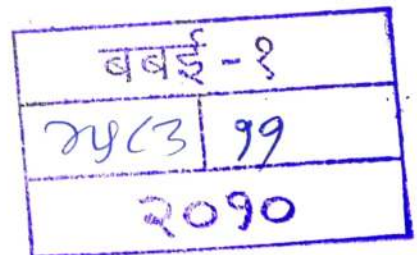 बबई - १
२५८३ | ११
२०१०